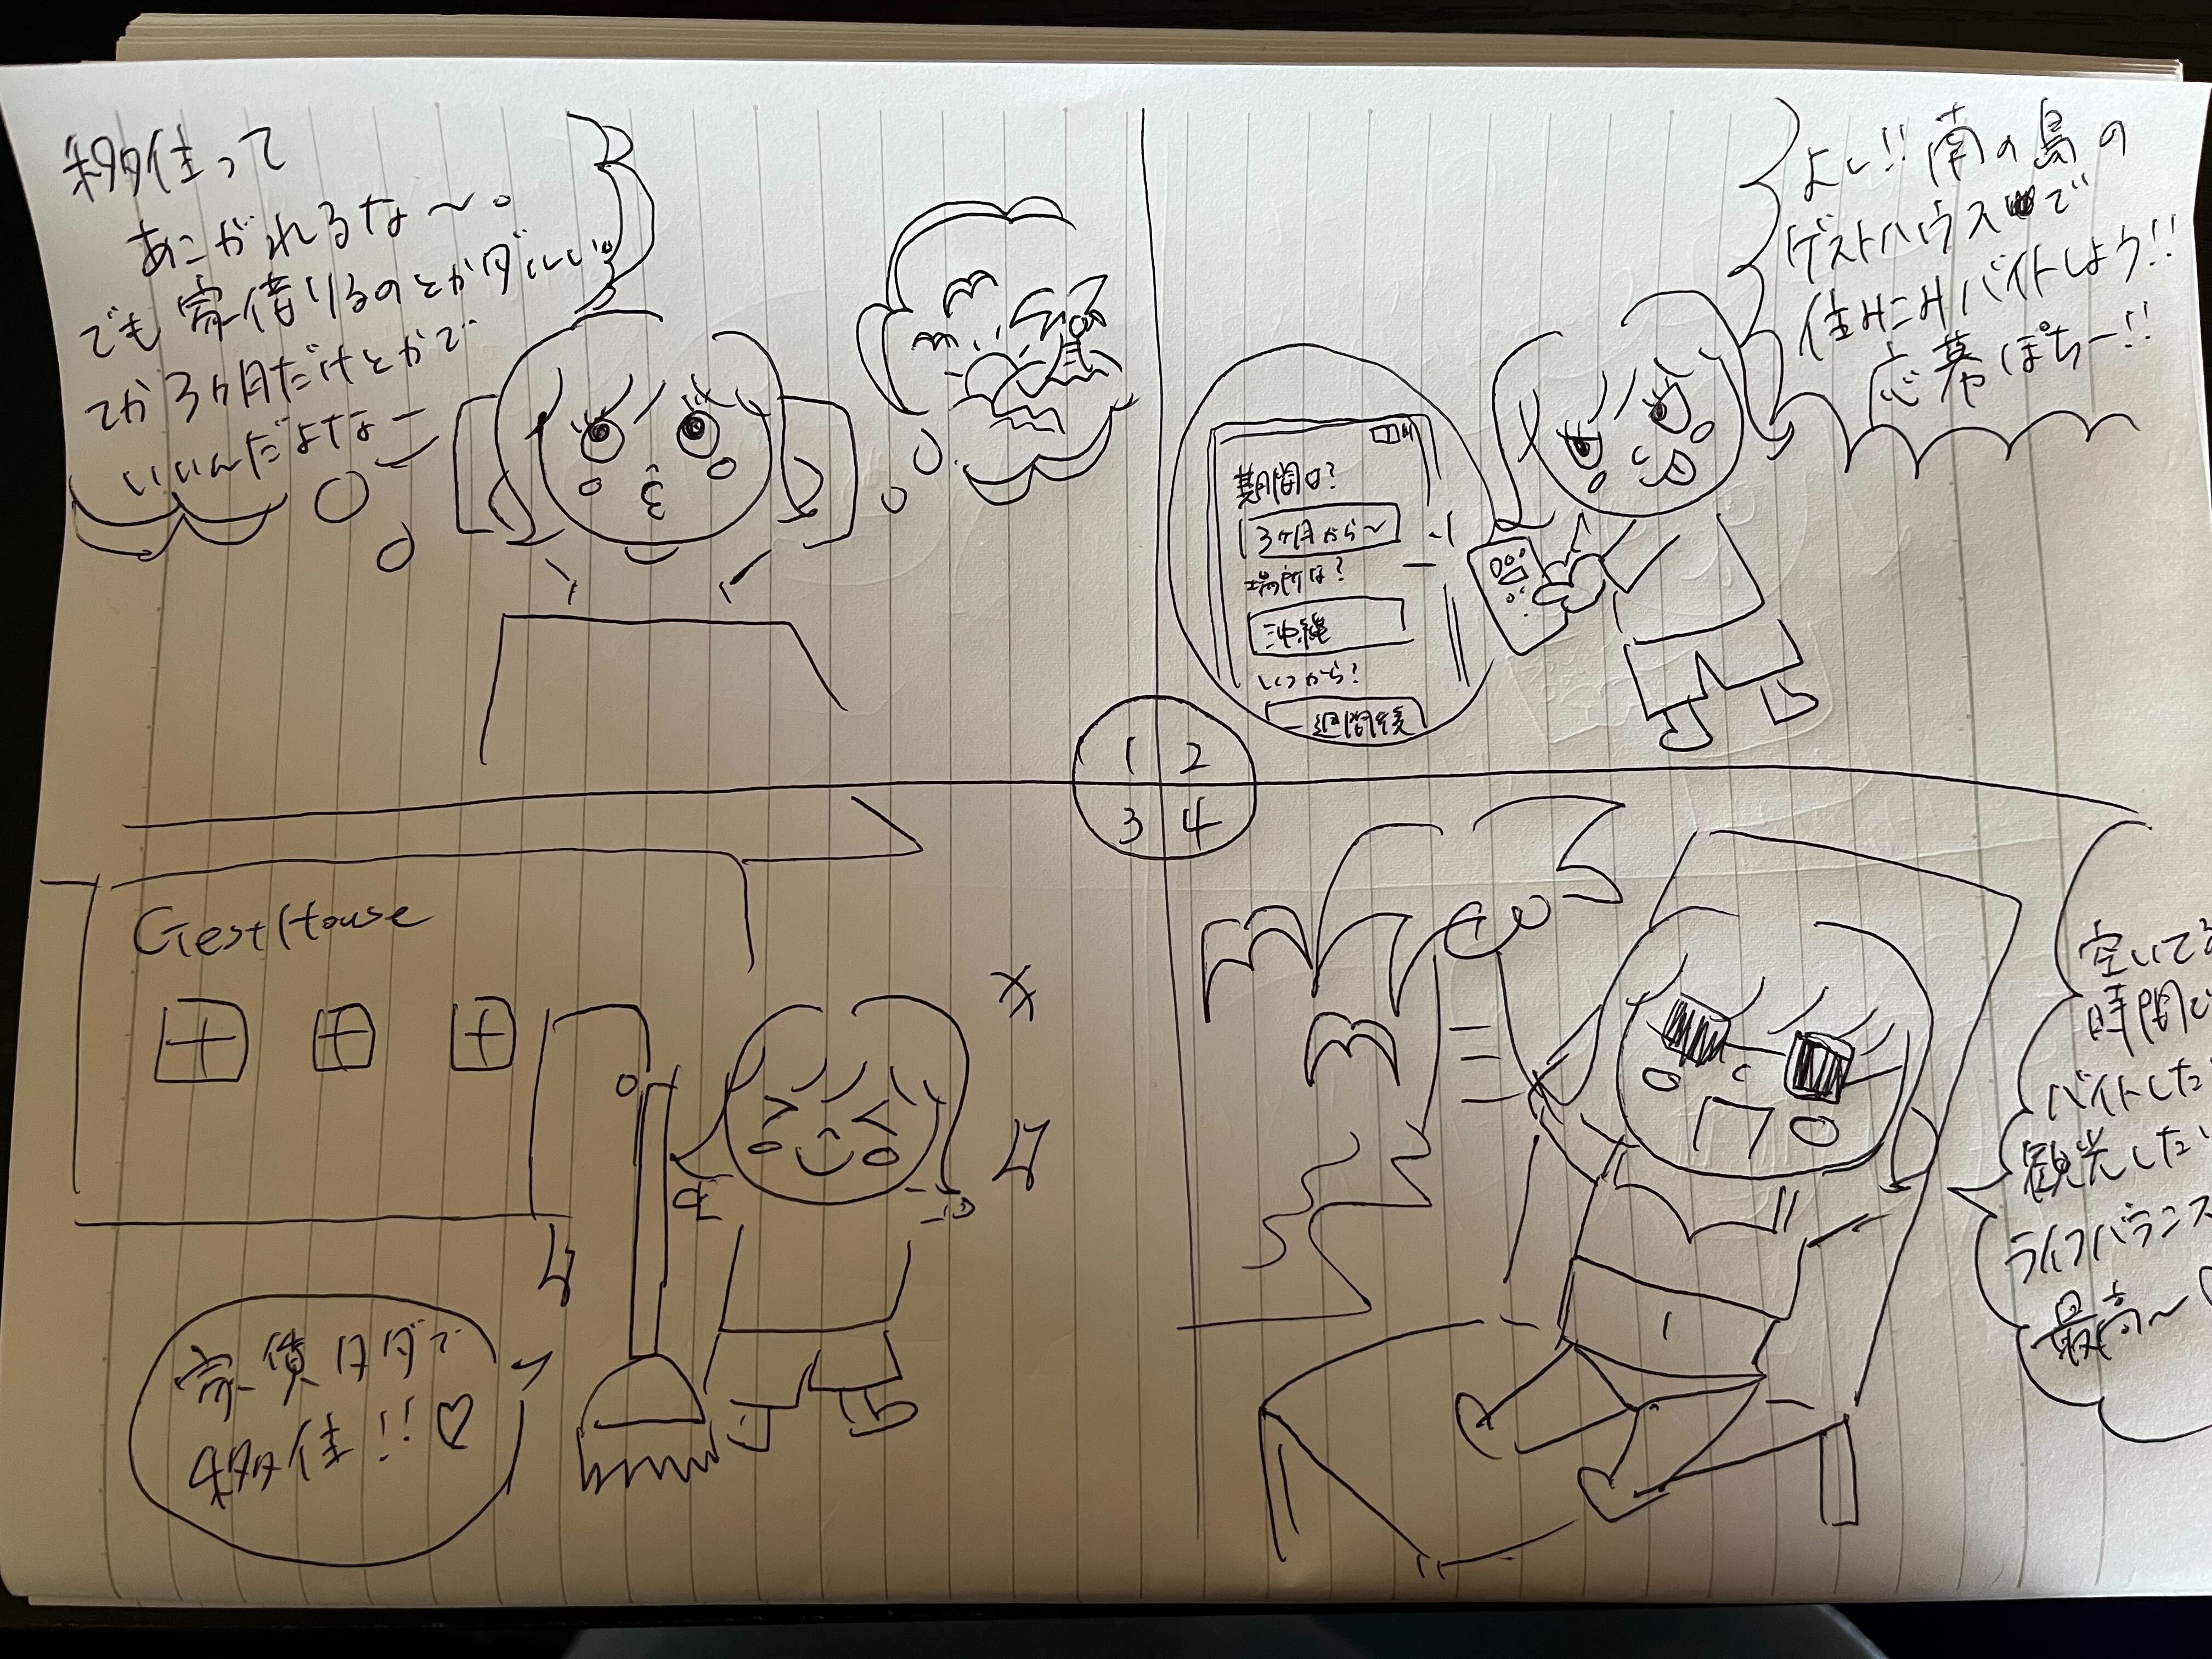 移住って
あこがれるな〜。
でも家借りるのとかダルいし
てか3ヶ月だけとかで
いいんだよなー
よし!!南の島の
ゲストハウスで
住みこみバイトしよう!!
応募ぽちー!!
期間は?
3ヶ月から〜
場所は?
沖縄
いつから?
一週間後
1 2
3 4
GestHouse
家賃タダで
移住!!♡
空いてる
時間で
バイトした
観光した
ライフバランス
最高〜